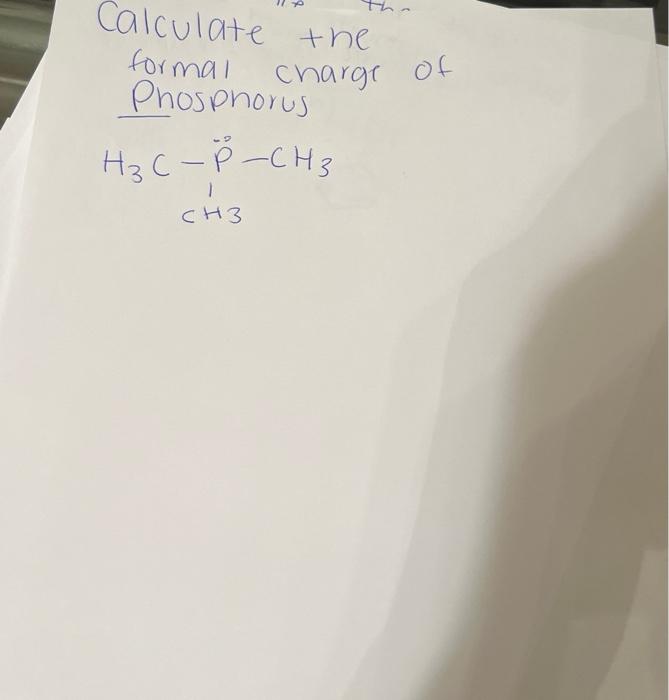 Calculate the
formal charge of
Phosphorus
H3C-P̈-CH3
|
CH3